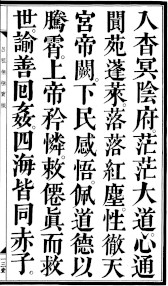 入杳冥陰府茫茫大道心通
閬苑蓬萊落落紅塵性徹天
宮帝闕下民感悟佩道德以
騰霄上帝矜憐敕僊眞而救
世諭善回姦四海皆同赤子